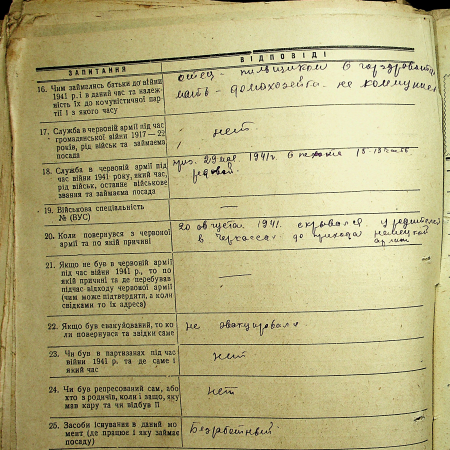 ЗАПИТАННЯ
ВІДПОВІДІ
16. Чим займались батьки до війни
1941 р. і в даний час та належ-
ність їх до комуністичної пар-
тії і з якого часу
отец - пильщиком в горздравотд.
мать - домохозяйка - не коммунист
17. Служба в червоній армії під час
громадянської війни 1917—22
років, рід військ та займаєма
посада
нет.
18. Служба в червоній армії під
час війни 1941 року, який час,
рід військ, останнє військове
звання та займаєма посада
1941г. в
рядовой.
19. Військова спеціяльність
№ (ВУС)
—
20. Коли повернувся з червоної
армії та по якій причині
20 августа 1941. скрывался у родителей
в Черкассах до прихода немецкой
армии
21. Якщо не був в червоній армії
під час війни 1941 р., то по
якій причині та де перебував
підчас відходу червоної армії
(чим може підтвердити, а коли
свідками то їх адреса)
—
22. Якщо був евакуйований, то ко-
ли повернувся та звідки саме
не эвакуировался
23. Чи був в партизанах під час
війни 1941 р. та де саме і
який час
нет
24. Чи був репресований сам, або
хто з родичів, коли і защо, яку
мав кару та чи відбув її
нет
25. Засоби існування в даний мо-
мент (де працює і яку займає
посаду)
Безработный